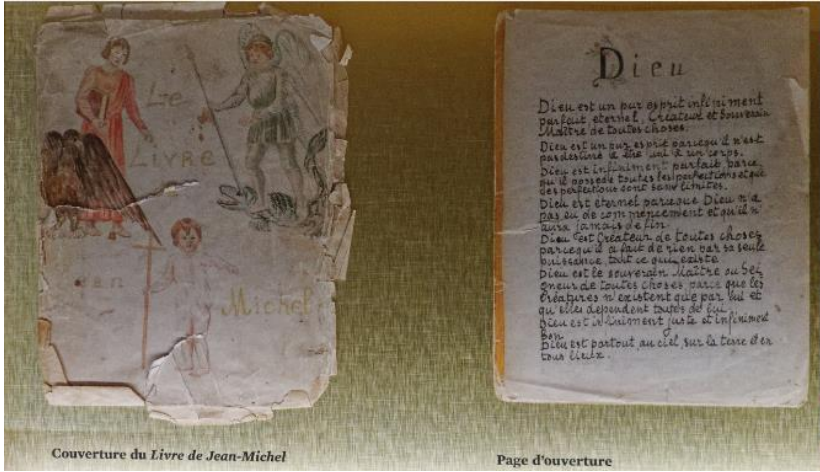 Le
Livre
en
Michel
Couverture du Livre de Jean-Michel
Dieu
Dieu est un pur esprit infiniment
parfait, eternel, Créateur et Souverain
Maître de toutes choses.
Dieu est un pur esprit parcequ'il n'est
pas destiné à être uni à un corps.
Dieu est infiniment parfait parce
qu'il possede toutes les perfections et que
ses perfections sont sans limites.
Dieu est éternel parceque Dieu n'a
pas eu de commencement et qu'il n'
aura jamais de fin.
Dieu est Créateur de toutes choses
parcequ'il a fait de rien par sa seule
puissance, tout ce qui existe.
Dieu est le souverain Maître ou Sei
gneur de toutes choses, parce que les
créatures n'existent que par lui et
qu'elles dependent toutes de lui.
Dieu est infiniment juste et infiniment
bon.
Dieu est partout, au ciel, sur la terre et en
tous lieux.
Page d'ouverture